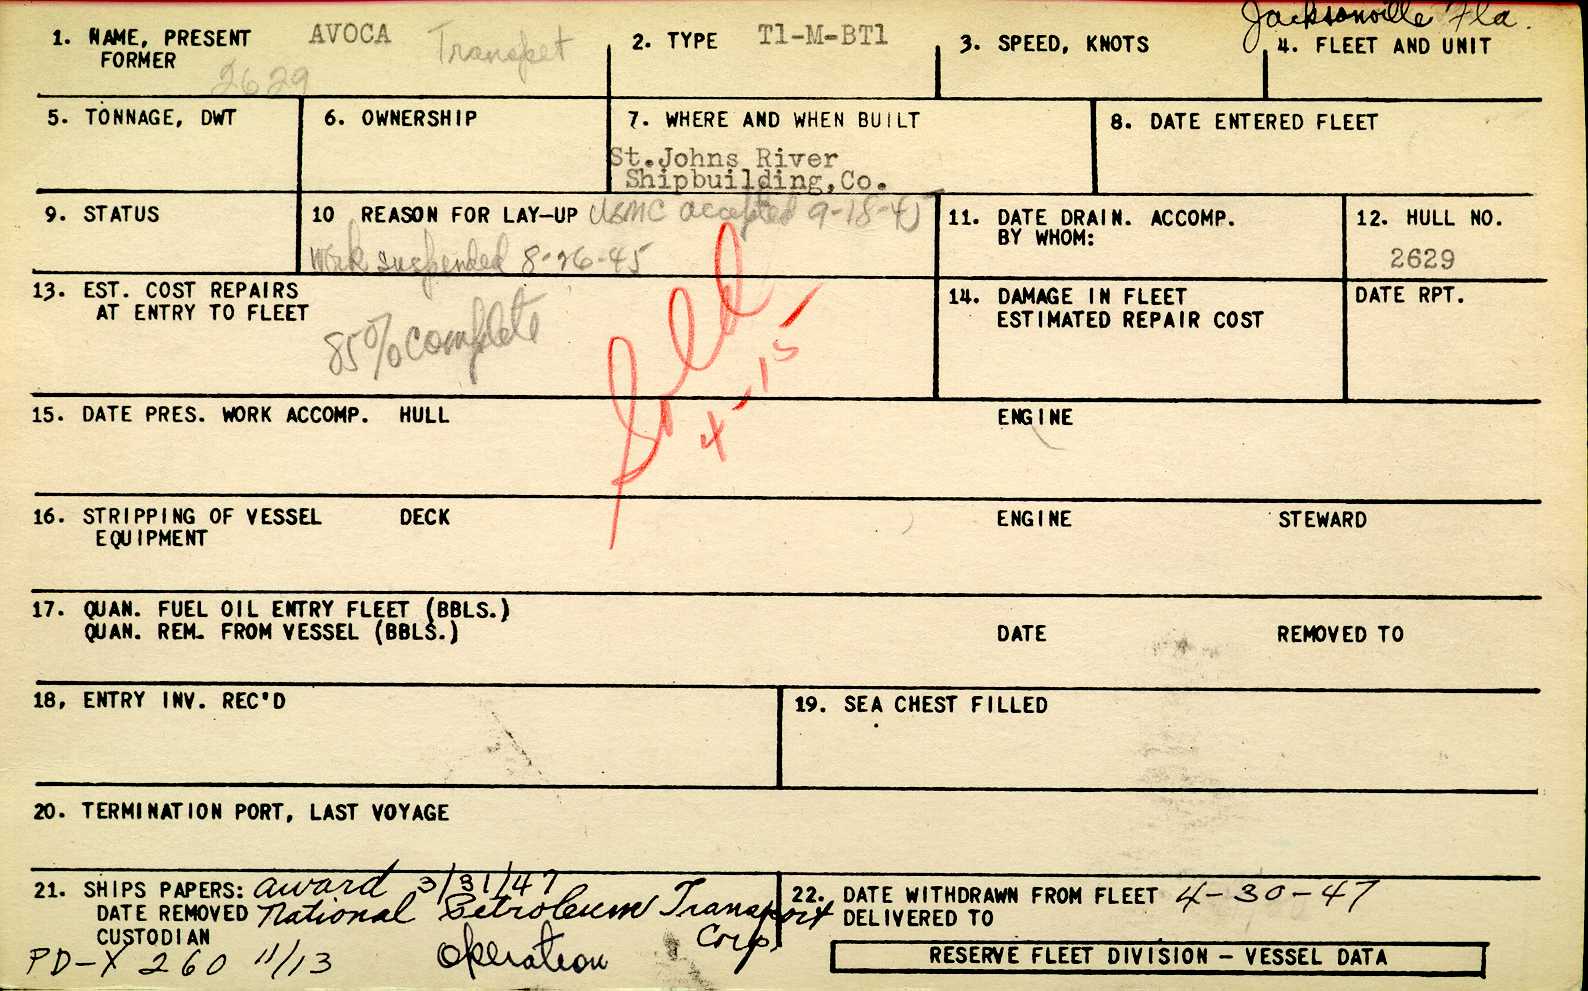 Jacksonville Fla.
1. NAME, PRESENT AVOCA Transpet 2. TYPE T1-M-BT1 3. SPEED, KNOTS 4. FLEET AND UNIT
FORMER 2629
5. TONNAGE, DWT 6. OWNERSHIP 7. WHERE AND WHEN BUILT 8. DATE ENTERED FLEET
St.Johns River
Shipbuilding,Co.
9. STATUS 10 REASON FOR LAY-UP USMC accepted 9-18-45 11. DATE DRAIN. ACCOMP. 12. HULL NO.
BY WHOM:
Work suspended 8-26-45 2629
13. EST. COST REPAIRS 14. DAMAGE IN FLEET DATE RPT.
AT ENTRY TO FLEET ESTIMATED REPAIR COST
85% complete
Sold
4-15
15. DATE PRES. WORK ACCOMP. HULL ENGINE
16. STRIPPING OF VESSEL DECK ENGINE STEWARD
EQUIPMENT
17. QUAN. FUEL OIL ENTRY FLEET (BBLS.)
QUAN. REM. FROM VESSEL (BBLS.) DATE REMOVED TO
18, ENTRY INV. REC'D 19. SEA CHEST FILLED
20. TERMINATION PORT, LAST VOYAGE
21. SHIPS PAPERS: award 3/31/47 22. DATE WITHDRAWN FROM FLEET 4-30-47
DATE REMOVED National Petroleum Transport Corp. DELIVERED TO
CUSTODIAN
PD-X 260 11/13 Operation RESERVE FLEET DIVISION - VESSEL DATA